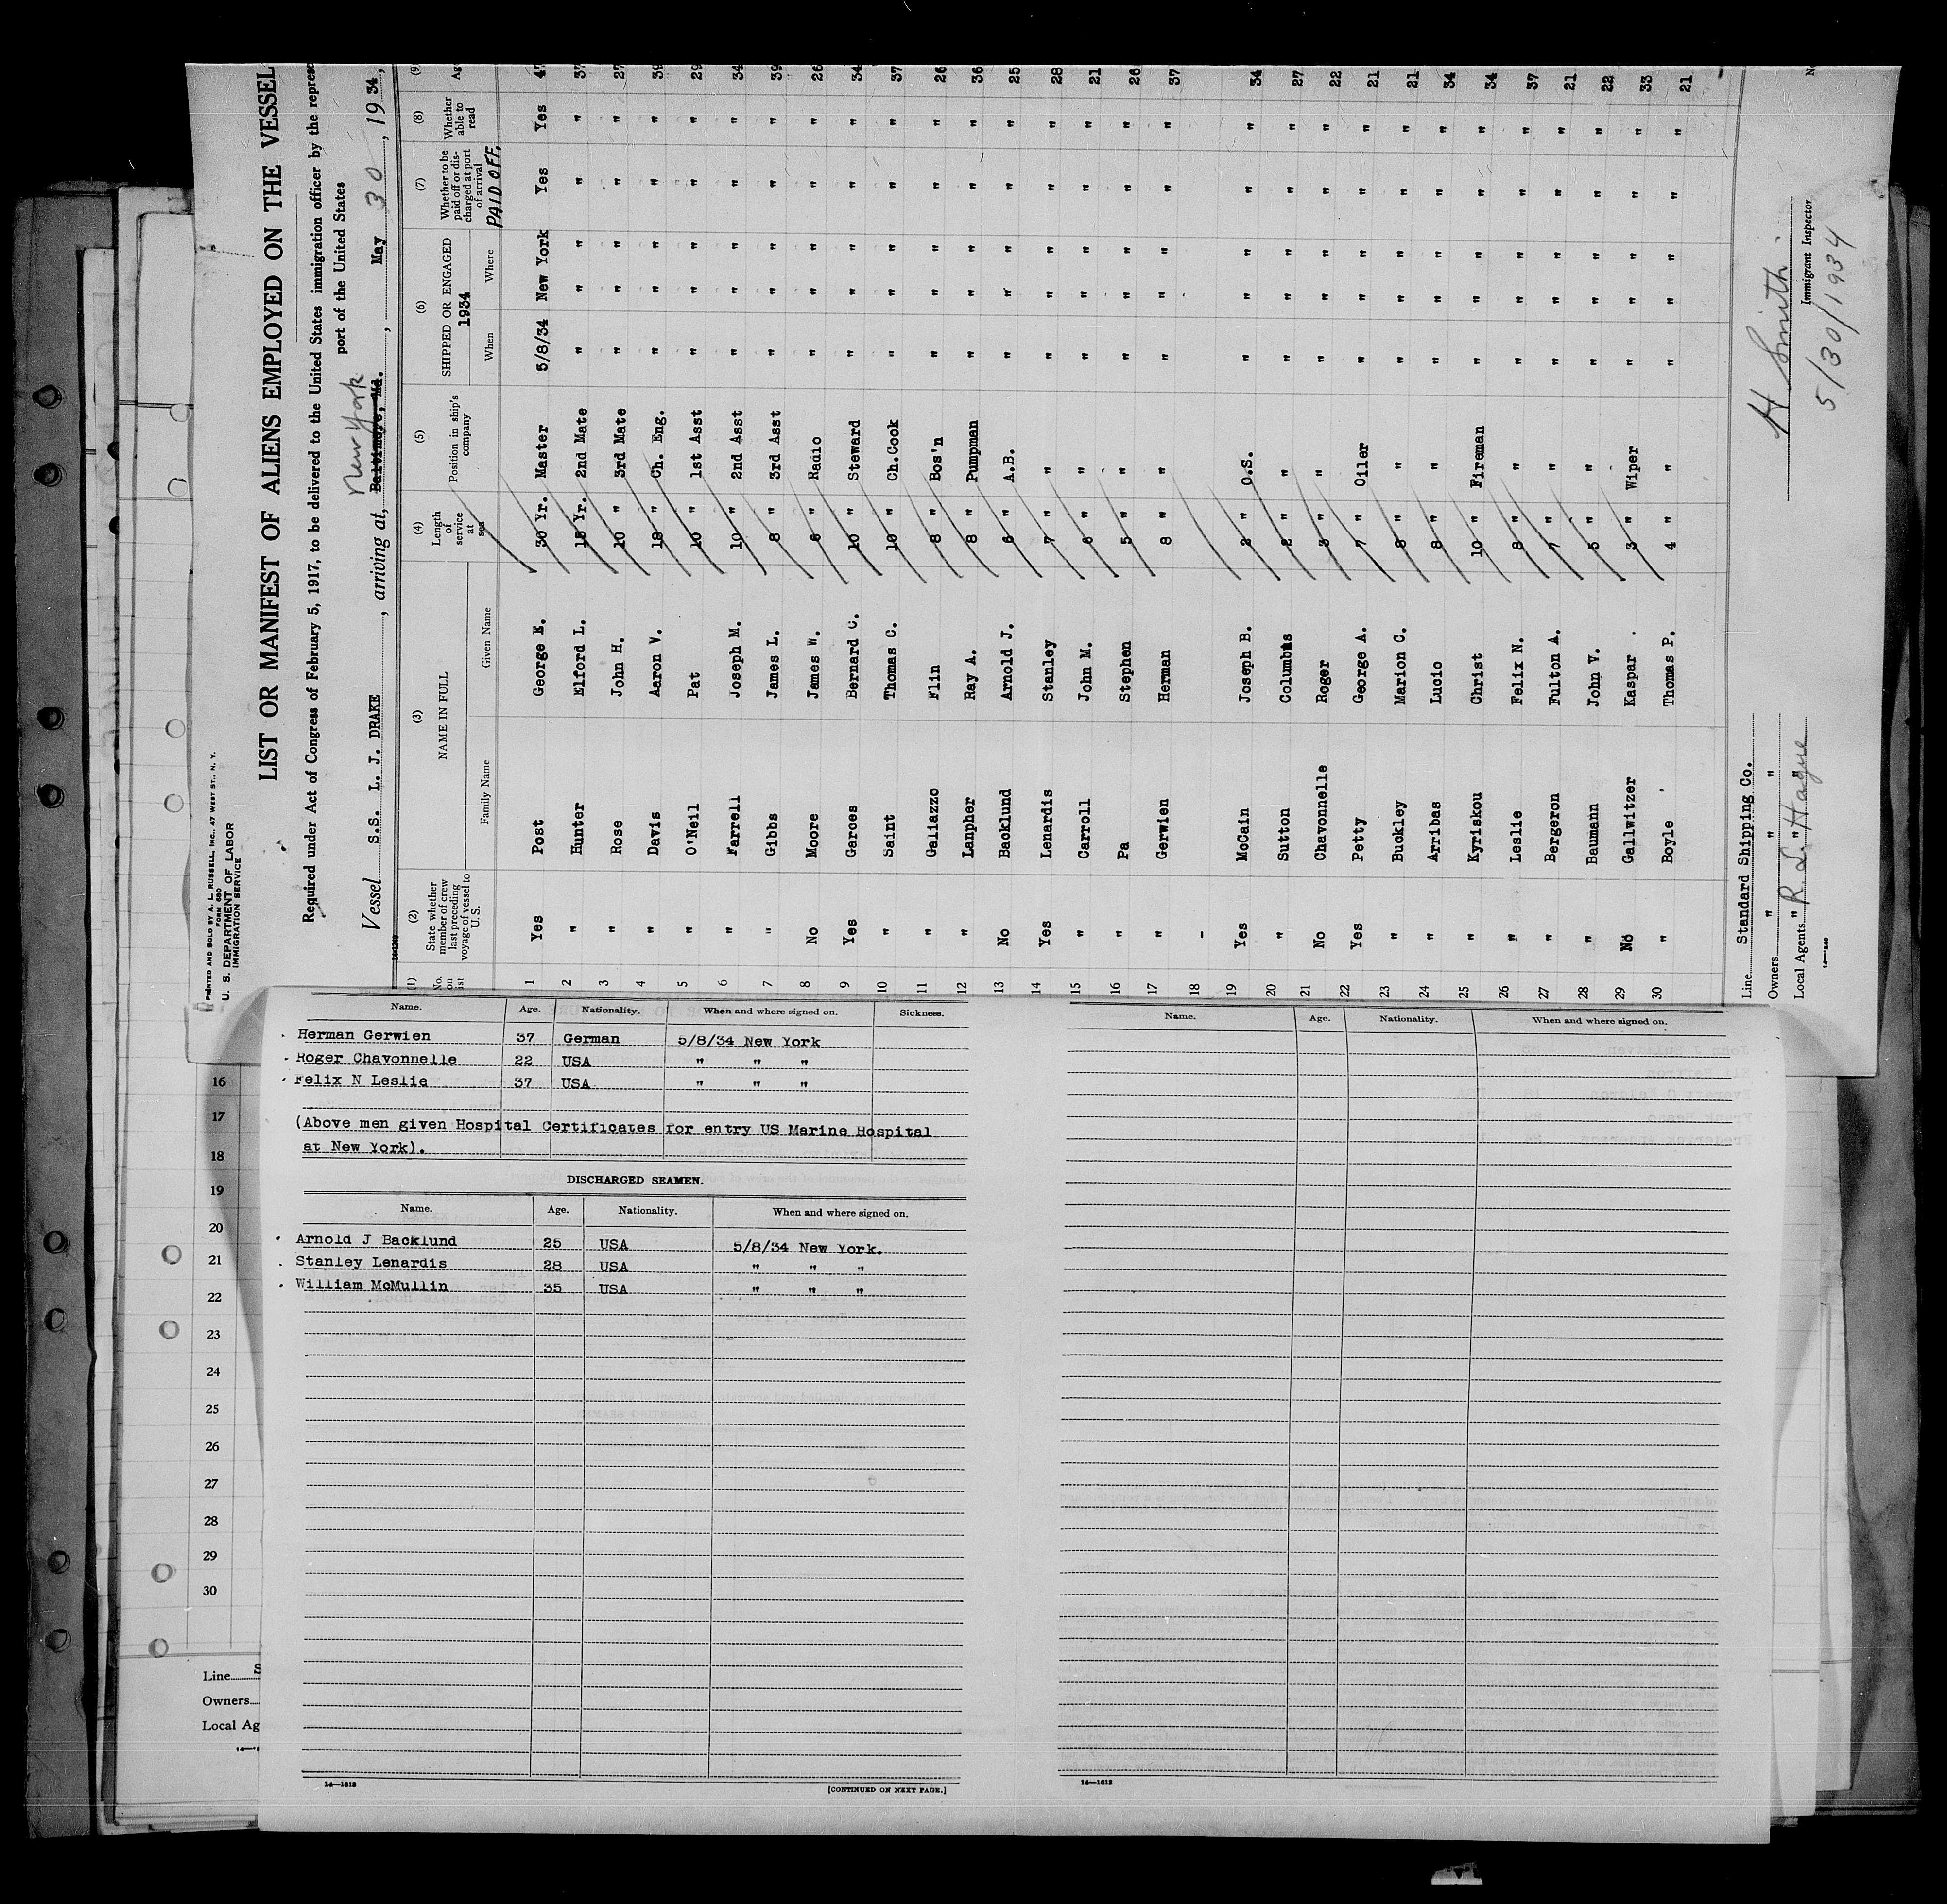 PRINTED AND SOLD BY A. L. RUSSELL, INC., 47 WEST ST., N. Y.
FORM 680
U. S. DEPARTMENT OF LABOR
IMMIGRATION SERVICE
LIST OR MANIFEST OF ALIENS EMPLOYED ON THE VESSEL
Required under Act of Congress of February 5, 1917, to be delivered to the United States immigration officer by the represe
port of the United States
New York
Vessel S.S. L. J. DRAKE, arriving at, Baltimore, Md., May 30, 1934,
(1) (2) (3) (4) (5) (6) (7) (8) (9
No. on list State whether member of crew last preceding voyage of vessel to U.S. NAME IN FULL Family Name Given Name Length of service at sea Position in ship's company SHIPPED OR ENGAGED 1934 When Where Whether to be paid off or discharged at port of arrival Whether able to read Ag
PAID OFF.
1 Yes Post George E. 30 Yr. Master 5/8/34 New York Yes Yes 47
2 " Hunter Elford L. 15 Yr. 2nd Mate " " " " " 37
3 " Rose John H. 10 " 3rd Mate " " " " " 27
4 " Davis Aaron V. 18 " Ch. Eng. " " " " " 39
5 " O'Neil Pat 10 " 1st Asst " " " " " 29
6 " Farrell Joseph M. 10 " 2nd Asst " " " " " 34
7 " Gibbs James L. 8 " 3rd Asst " " " " " 39
8 No Moore James W. 6 " Radio " " " " " 26
9 Yes Garoes Bernard C. 10 " Steward " " " " " 34
10 " Saint Thomas C. 10 " Ch.Cook " " " " " 37
11 " Galiazzo Flin 8 " Bos'n " " " " " 26
12 " Lanpher Ray A. 8 " Pumpman " " " " " 36
13 No Backlund Arnold J. 6 " A.B. " " " " " 25
14 Yes Lenardis Stanley 7 " " " " " " " 28
15 " Carroll John M. 6 " " " " " " " 21
16 " Pa Stephen 5 " " " " " " " 26
17 " Gerwien Herman 8 " " " " " " " 37
18 -
19 Yes McCain Joseph B. 2 " O.S. " " " " " 34
20 " Sutton Columbus 2 " " " " " " " 27
21 No Chavonnelle Roger 3 " " " " " " " 22
22 Yes Petty George A. 7 " Oiler " " " " " 21
23 " Buckley Marion C. 8 " " " " " " " 21
24 " Arribas Lucio 8 " " " " " " " 34
25 " Kyriskou Christ 10 " Fireman " " " " " 34
26 " Leslie Felix N. 8 " " " " " " " 37
27 " Bergeron Fulton A. 7 " " " " " " " 21
28 " Baumann John V. 5 " " " " " " " 22
29 No Gallwitzer Kaspar 3 " Wiper " " " " " 33
30 " Boyle Thomas P. 4 " " " " " " " 21
Line Standard Shipping Co.
Owners " " "
Local Agents " " " R L Hague
14—1240
H Smith
Immigrant Inspector
5/30/1934
Name. Age. Nationality. When and where signed on. Sickness.
Herman Gerwien 37 German 5/8/34 New York
Roger Chavonnelle 22 USA " " "
Felix N Leslie 37 USA " " "
(Above men given Hospital Certificates for entry US Marine Hospital
at New York).
DISCHARGED SEAMEN.
Name. Age. Nationality. When and where signed on.
Arnold J Backlund 25 USA 5/8/34 New York.
Stanley Lenardis 28 USA " " "
William McMullin 35 USA " " "
14—1613
[CONTINUED ON NEXT PAGE.]
Name. Age. Nationality. When and where signed on.
14—1613
16
17
18
19
20
21
22
23
24
25
26
27
28
29
30
Line S
Owners
Local Ag